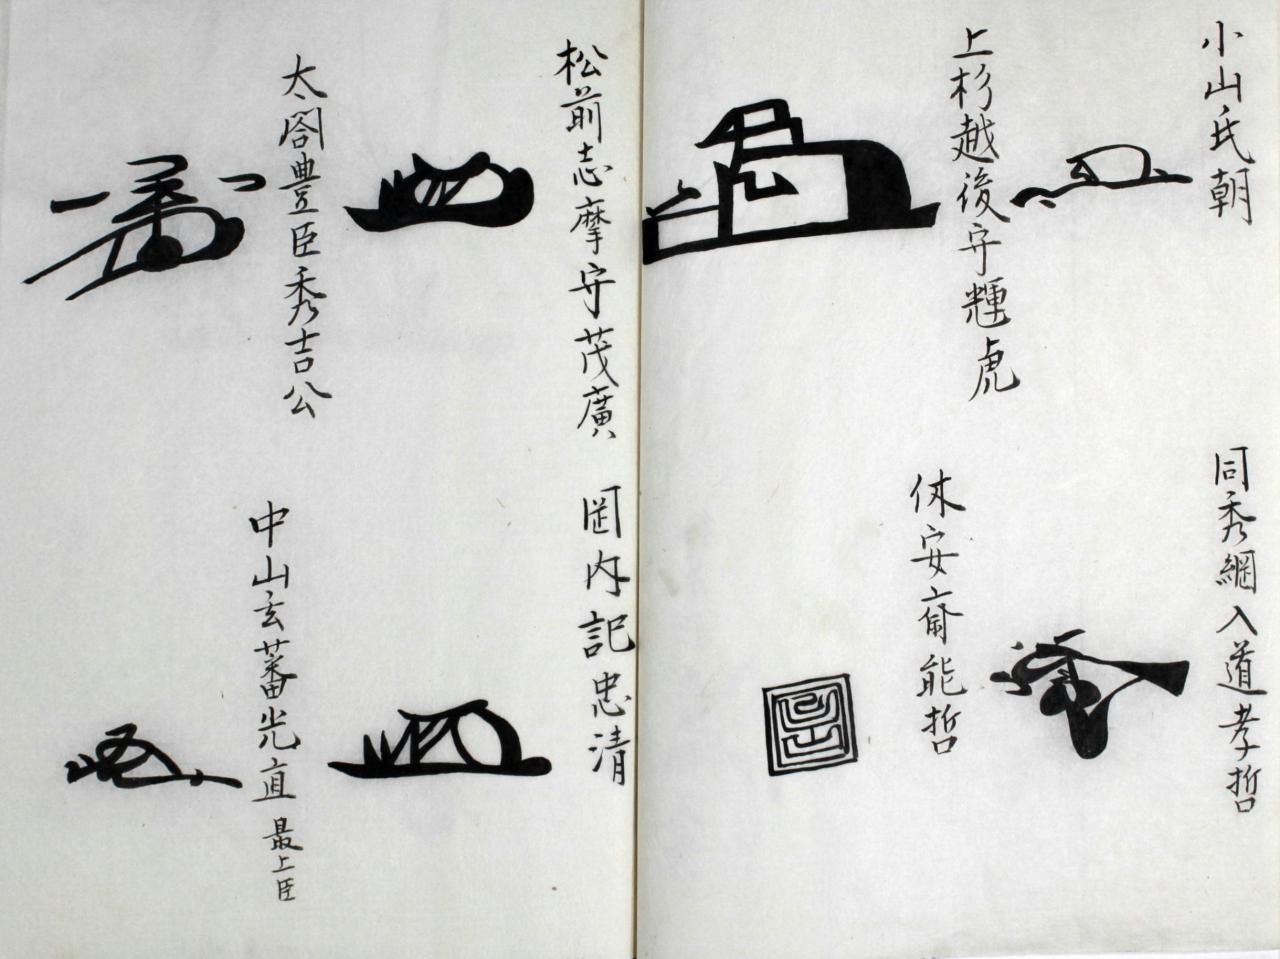 小山氏朝
同秀綱入道孝哲
上杉越後守輝虎
休安斎能哲
松前志摩守茂廣
岡内記忠清
太閤豊臣秀吉公
中山玄蕃光直 最上臣